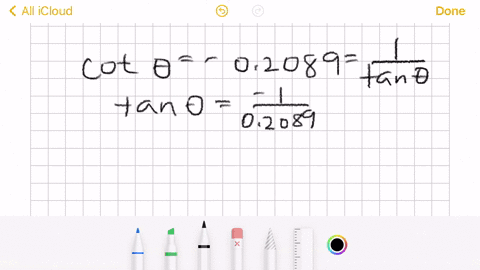 All iCloud Done
cot θ = - 0.2089 = 1/tan θ
tan θ = -1/0.2089